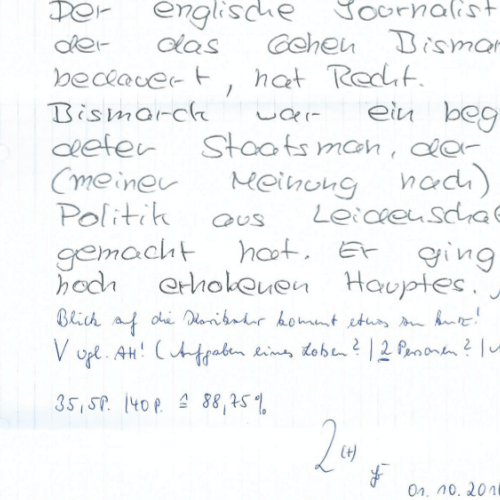 Der englische Journalist
der das Gehen Bismar
bedauert, hat Recht.
Bismarck war ein beg
deter Staatsman, der
(meiner Meinung nach)
Politik aus Leidenscha
gemacht hat. Er ging
hoch erhobenen Hauptes.
Blick auf die Karikatur kommt etwas zu kurz!
V vgl. AH! (Aufgaben eines Lotsen? | 2 Personen? |
35,5P. /40P. ≙ 88,75%
2 (+)
01.10.201